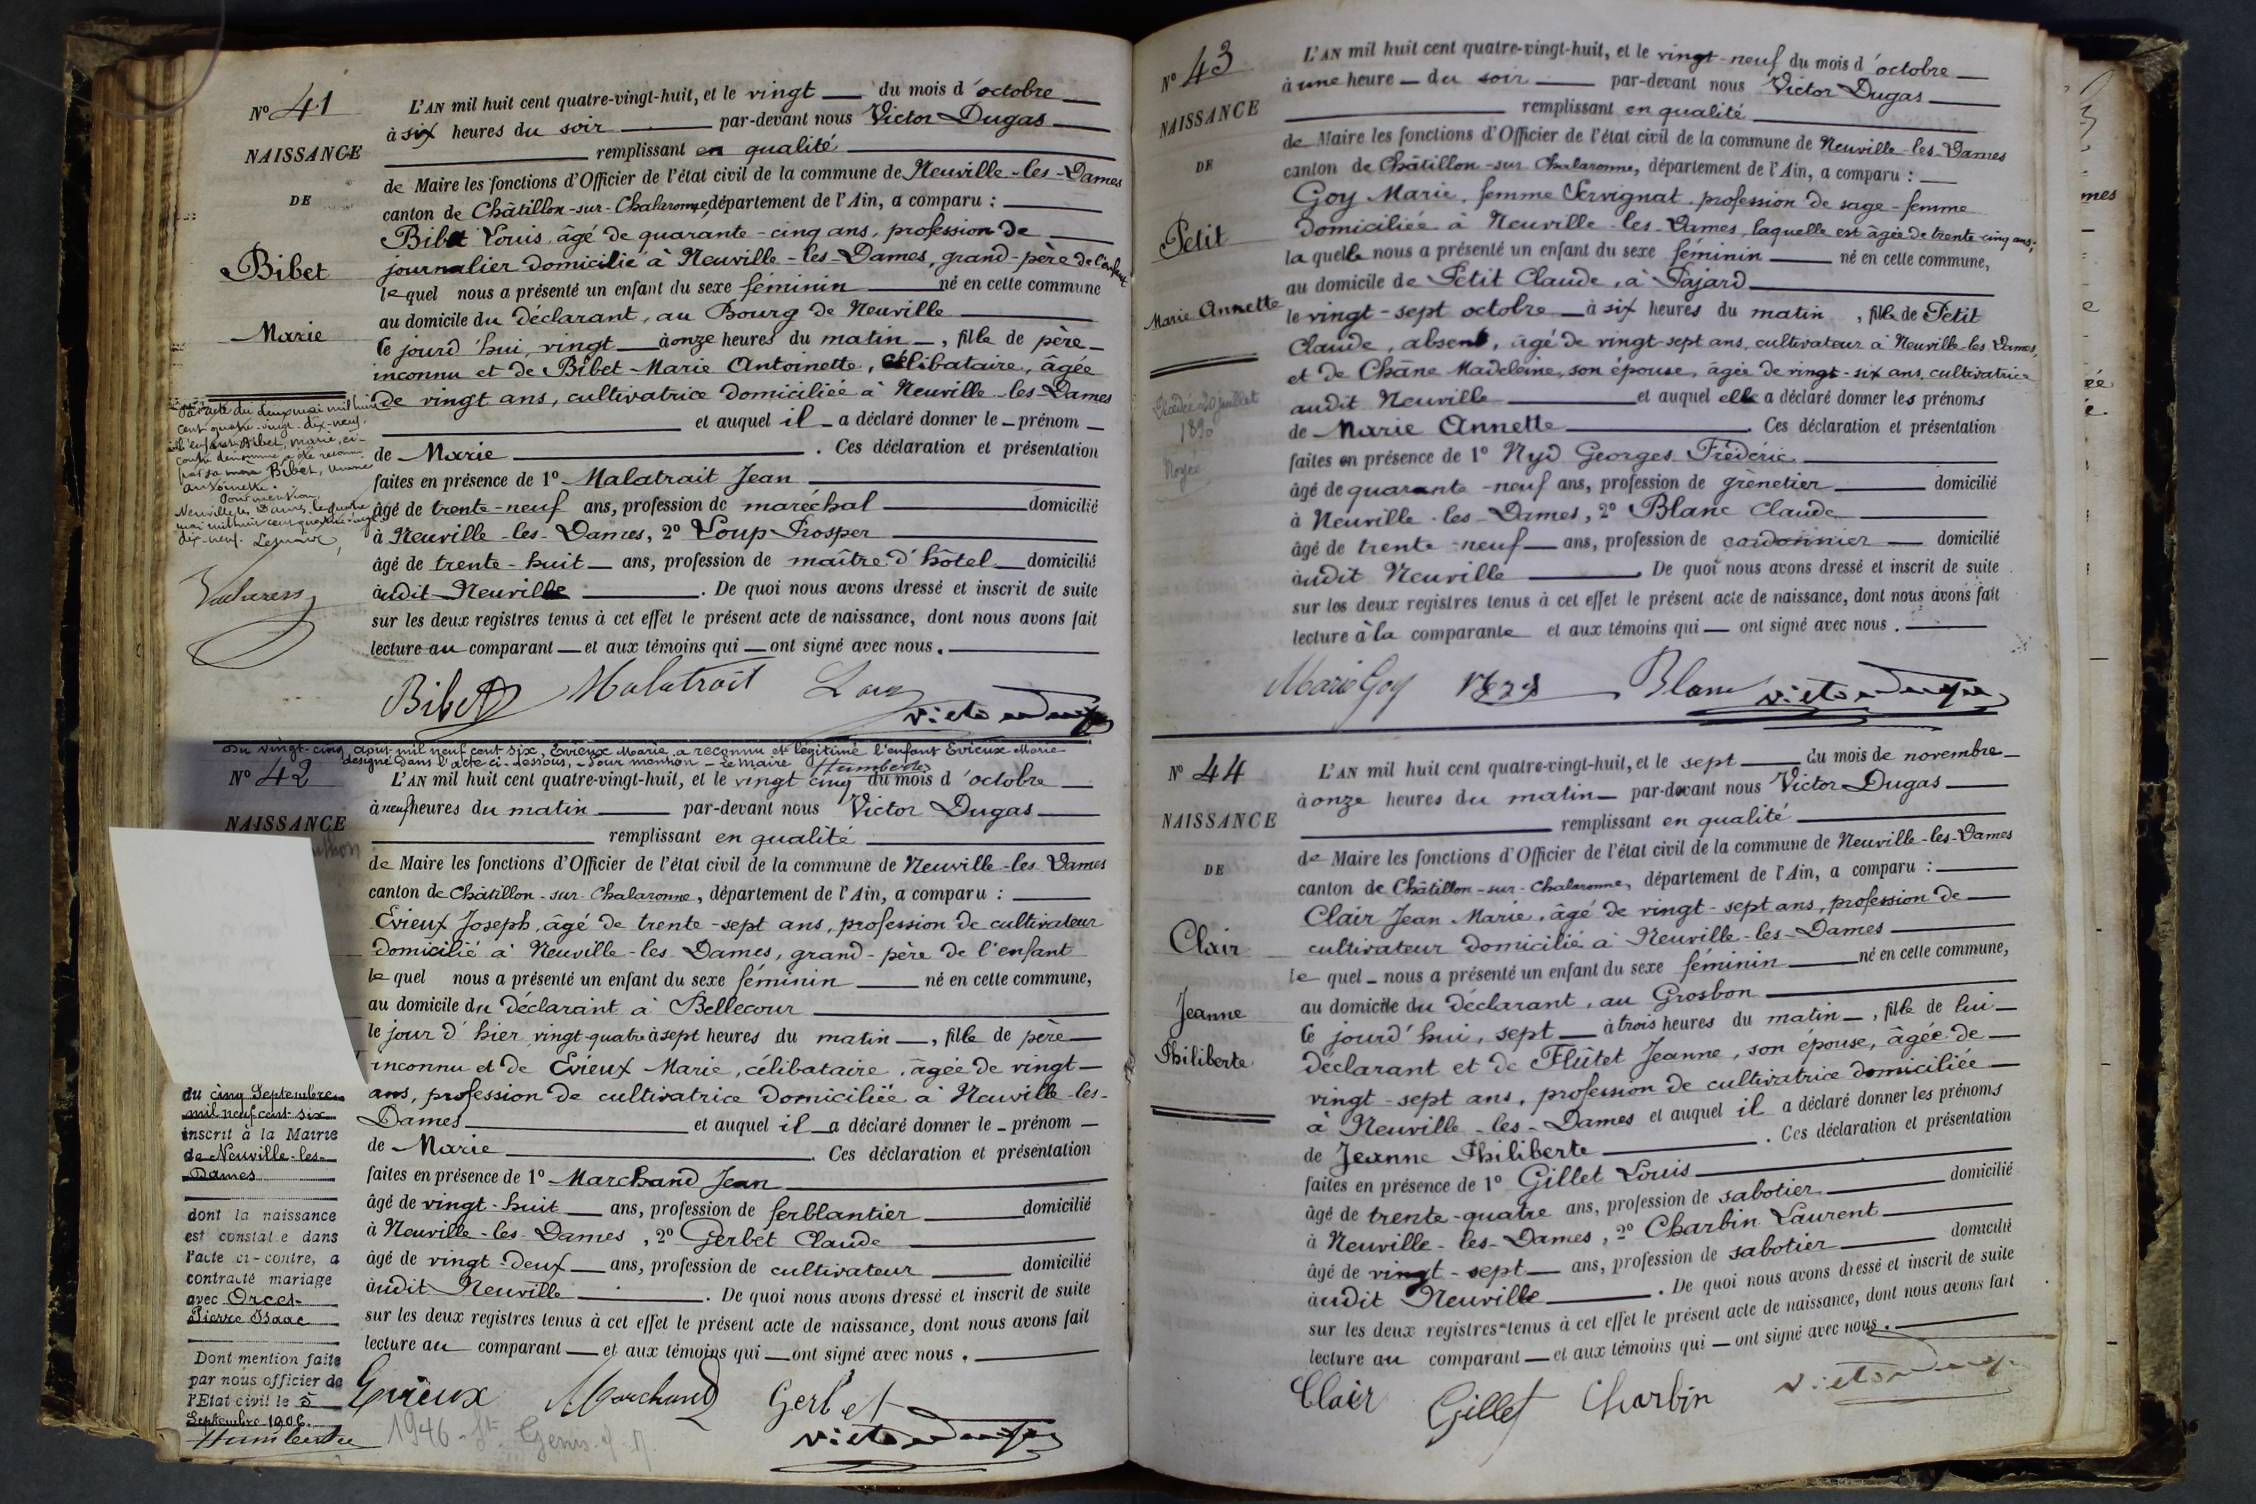 N° 41
NAISSANCE
DE
Bibet
Marie
L'AN mil huit cent quatre-vingt-huit, et le vingt du mois d'octobre
à six heures du soir par-devant nous Victor Dugas
remplissant en qualité
de Maire les fonctions d'Officier de l'état civil de la commune de Neuville-les-Dames
canton de Châtillon-sur-Chalaronne, département de l'Ain, a comparu :
Bibet Louis, âgé de quarante-cinq ans, profession de
journalier domicilié à Neuville-les-Dames, grand-père de l'enfant
lequel nous a présenté un enfant du sexe féminin né en cette commune
au domicile du déclarant, au Bourg de Neuville
le jourd'hui, vingt à onze heures du matin, fille de père
inconnu et de Bibet Marie Antoinette, célibataire, âgée
de vingt ans, cultivatrice domiciliée à Neuville-les-Dames
et auquel il a déclaré donner le prénom
de Marie . Ces déclaration et présentation
faites en présence de 1° Malatrait Jean
âgé de trente-neuf ans, profession de maréchal domicilié
à Neuville-les-Dames, 2° Loup Prosper
âgé de trente-huit ans, profession de maître d'hôtel domicilié
audit Neuville . De quoi nous avons dressé et inscrit de suite
sur les deux registres tenus à cet effet le présent acte de naissance, dont nous avons fait
lecture au comparant et aux témoins qui ont signé avec nous.
Bibet Malatrait Loup Victor Dugas
Par acte du deux mai mil huit
cent quatre-vingt-dix-neuf,
l'enfant Bibet, Marie, ci-
contre dénommé a été reconnu
par sa mère Bibet, Marie
Antoinette.
Pour mention,
Neuville les Dames, le quatre
mai mil huit cent quatre-vingt
dix-neuf. Le Maire,
Du vingt-cinq août mil neuf cent six, Evieux Marie a reconnu et légitimé l'enfant Evieux Marie
désigné dans l'acte ci-dessous, - Pour mention - Le Maire Humbert
N° 42
NAISSANCE
L'AN mil huit cent quatre-vingt-huit, et le vingt cinq du mois d'octobre
à neuf heures du matin par-devant nous Victor Dugas
remplissant en qualité
de Maire les fonctions d'Officier de l'état civil de la commune de Neuville-les Dames
canton de Châtillon-sur-Chalaronne, département de l'Ain, a comparu :
Evieux Joseph, âgé de trente-sept ans, profession de cultivateur
domicilié à Neuville-les-Dames, grand-père de l'enfant
lequel nous a présenté un enfant du sexe féminin né en cette commune,
au domicile du déclarant à Bellecour
le jour d'hier, vingt-quatre à sept heures du matin, fille de père
inconnu et de Evieux Marie, célibataire, âgée de vingt
ans, profession de cultivatrice domiciliée à Neuville-les-
Dames et auquel il a déclaré donner le prénom
de Marie . Ces déclaration et présentation
faites en présence de 1° Marchand Jean
âgé de vingt-huit ans, profession de ferblantier domicilié
à Neuville-les-Dames, 2° Gerbet Claude
âgé de vingt-deux ans, profession de cultivateur domicilié
audit Neuville . De quoi nous avons dressé et inscrit de suite
sur les deux registres tenus à cet effet le présent acte de naissance, dont nous avons fait
lecture au comparant et aux témoins qui ont signé avec nous.
Evieux Marchand Gerbet
Victor Dugas
1946 - St Genis
du cinq Septembre
mil neuf cent six
inscrit à la Mairie
de Neuville-les-
Dames
dont la naissance
est constatée dans
l'acte ci-contre, a
contracté mariage
avec Orcet
Pierre Isaac
Dont mention faite
par nous officier de
l'Etat civil le 5
Septembre 1906.
N° 43
NAISSANCE
DE
Petit
Marie Annette
20 juillet
1890
Noyée
L'AN mil huit cent quatre-vingt-huit, et le vingt-neuf du mois d'octobre
à une heure du soir par-devant nous Victor Dugas
remplissant en qualité
de Maire les fonctions d'Officier de l'état civil de la commune de Neuville-les-Dames
canton de Châtillon-sur-Chalaronne, département de l'Ain, a comparu :
Goy Marie, femme Servignat, profession de sage-femme
domiciliée à Neuville-les-Dames, laquelle est âgée de trente cinq ans;
laquelle nous a présenté un enfant du sexe féminin né en cette commune,
au domicile de Petit Claude, à Pajard
le vingt-sept octobre à six heures du matin, fille de Petit
Claude, absent, âgé de vingt-sept ans, cultivateur à Neuville-les Dames,
et de Châne Madeleine, son épouse, âgée de vingt-six ans, cultivatrice
audit Neuville et auquel elle a déclaré donner les prénoms
de Marie Annette . Ces déclaration et présentation
faites en présence de 1° Nyd Georges Frédéric
âgé de quarante-neuf ans, profession de grènetier domicilié
à Neuville-les-Dames, 2° Blanc Claude
âgé de trente-neuf ans, profession de cordonnier domicilié
audit Neuville . De quoi nous avons dressé et inscrit de suite
sur les deux registres tenus à cet effet le présent acte de naissance, dont nous avons fait
lecture à la comparante et aux témoins qui ont signé avec nous.
Marie Goy Blanc Victor Dugas
N° 44
NAISSANCE
DE
Clair
Jeanne
Philiberte
L'AN mil huit cent quatre-vingt-huit, et le sept du mois de novembre
à onze heures du matin par-devant nous Victor Dugas
remplissant en qualité
de Maire les fonctions d'Officier de l'état civil de la commune de Neuville-les-Dames
canton de Châtillon-sur-Chalaronne, département de l'Ain, a comparu :
Clair Jean Marie, âgé de vingt-sept ans, profession de
cultivateur domicilié à Neuville-les-Dames
lequel nous a présenté un enfant du sexe féminin né en cette commune,
au domicile du déclarant, au Grosbon
le jourd'hui, sept à trois heures du matin, fille de lui
déclarant et de Flûtet Jeanne, son épouse, âgée de
vingt-sept ans, profession de cultivatrice domiciliée
à Neuville-les-Dames et auquel il a déclaré donner les prénoms
de Jeanne Philiberte . Ces déclaration et présentation
faites en présence de 1° Gillet Louis
âgé de trente-quatre ans, profession de sabotier domicilié
à Neuville-les-Dames, 2° Charbin Laurent
âgé de vingt-sept ans, profession de sabotier domicilié
audit Neuville . De quoi nous avons dressé et inscrit de suite
sur les deux registres tenus à cet effet le présent acte de naissance, dont nous avons fait
lecture au comparant et aux témoins qui ont signé avec nous.
Clair Gillet Charbin Victor Dugas